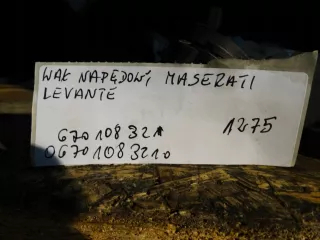 WAŁ NAPĘDOWY MASERATI
LEVANTE
670108321 1275
06701083210